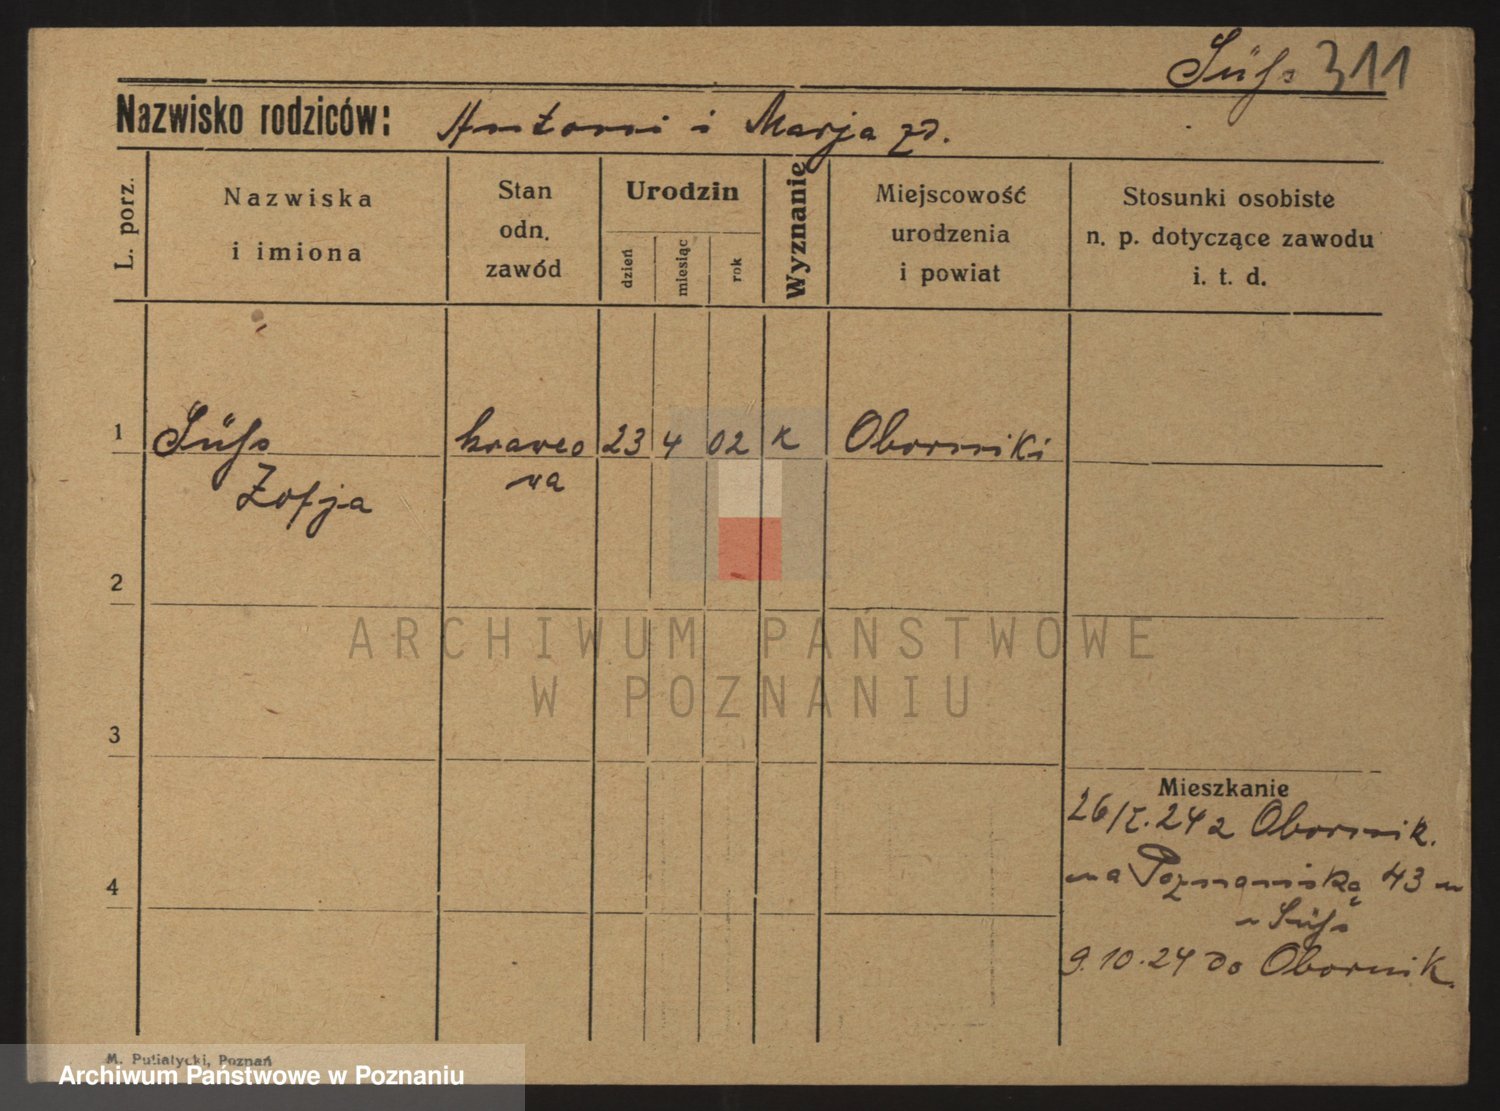 Süſs 311
Nazwisko rodziców: Antoni i Marja zd.
L. porz.
Nazwiska
i imiona
Stan
odn.
zawód
Urodzin
dzień
miesiąc
rok
Wyznanie
Miejscowość
urodzenia
i powiat
Stosunki osobiste
n. p. dotyczące zawodu
i. t. d.
1 Süſs krawco 23 4 02 k Oborniki
Zofja wa
2
ARCHIWUM PAŃSTWOWE
W POZNANIU
3
Mieszkanie
26/I.24 z Obornik.
4
na Poznańską 43
Süſs
9.10.24 do Obornik.
M. Putiatycki, Poznań
Archiwum Państwowe w Poznaniu